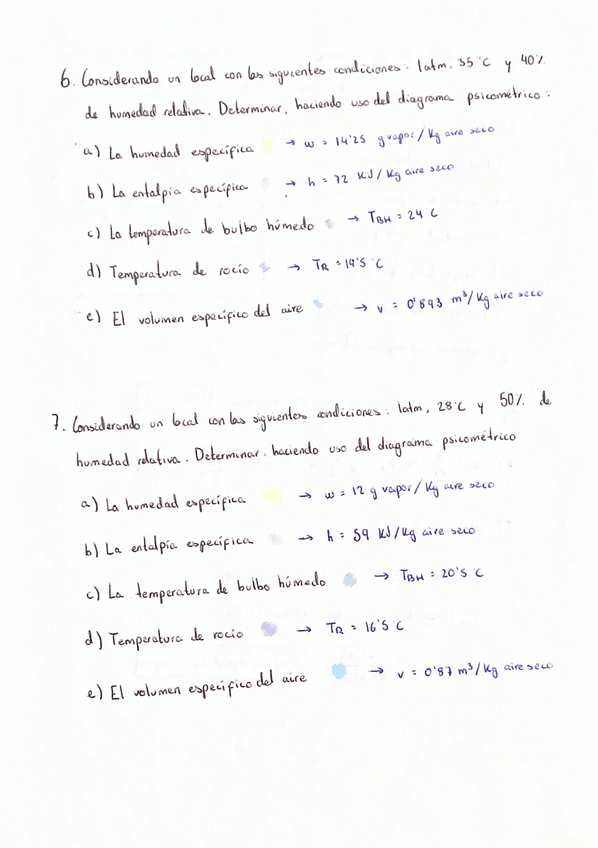 6. Considerando un local con las siguientes condiciones: 1atm, 35°C y 40%
de humedad relativa. Determinar, haciendo uso del diagrama psicométrico:
a) La humedad específica → w = 14'25 g vapor/Kg aire seco
b) La entalpía específica → h = 72 KJ/Kg aire seco
c) La temperatura de bulbo húmedo → TBH = 24°C
d) Temperatura de rocío → TR = 19'5°C
e) El volumen específico del aire → v = 0'893 m³/Kg aire seco
7. Considerando un local con las siguientes condiciones: 1atm, 28°C y 50% de
humedad relativa. Determinar, haciendo uso del diagrama psicométrico
a) La humedad específica → w = 12 g vapor/Kg aire seco
b) La entalpía específica → h = 59 KJ/Kg aire seco
c) La temperatura de bulbo húmedo → TBH = 20'5°C
d) Temperatura de rocío → TR = 16'5°C
e) El volumen específico del aire → v = 0'87 m³/Kg aire seco